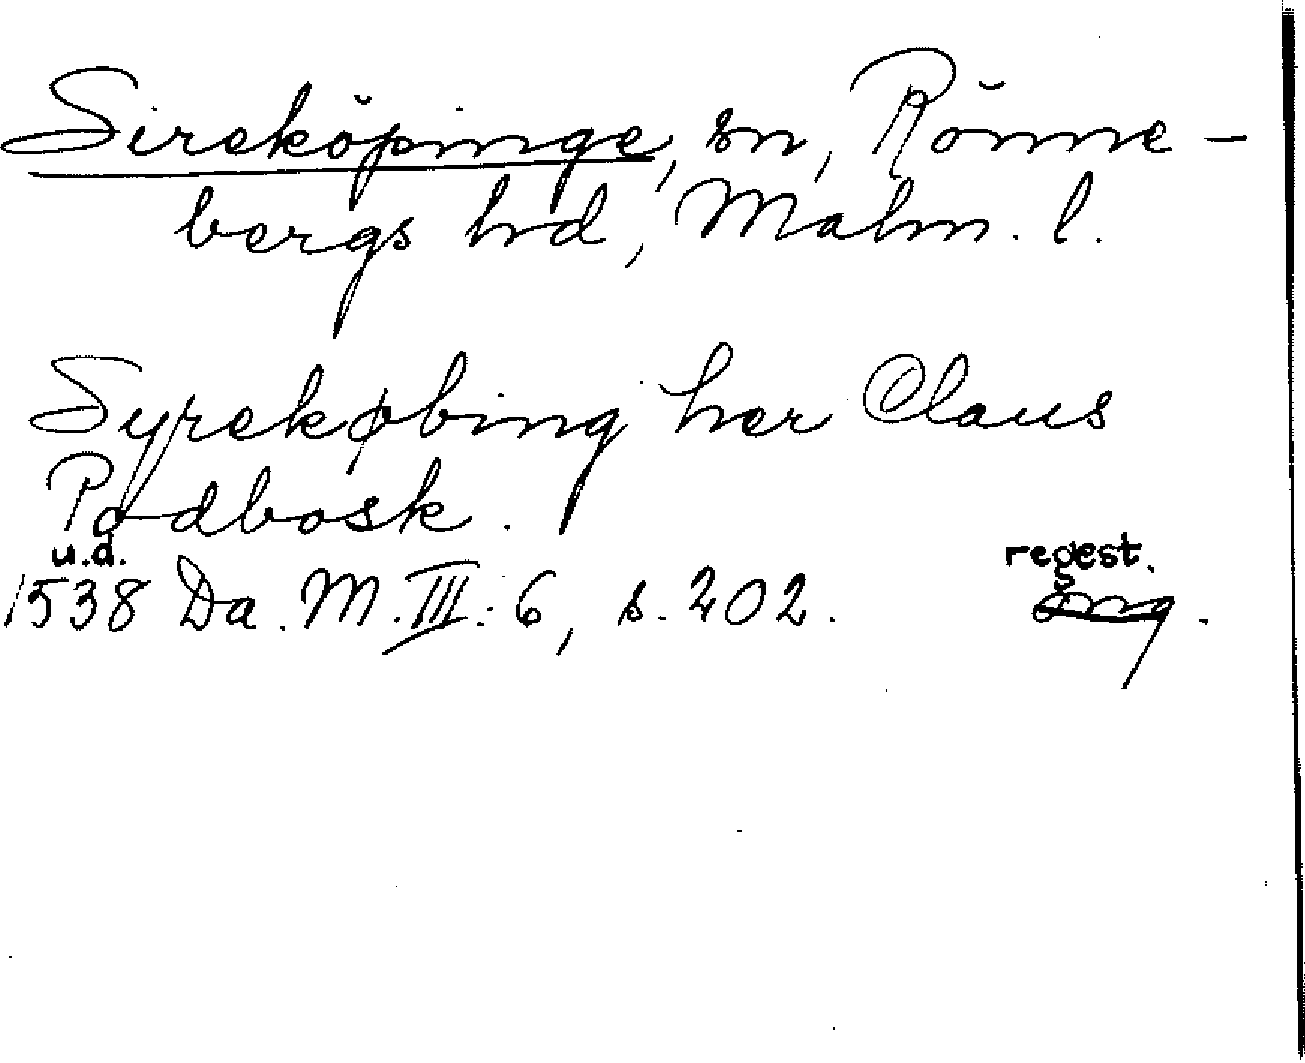 Sireköpinge, sn, Rönne-
bergs hd, Malm. l.
Syrekøbing her Claus
Podbosk.
u.d.
1538 Da. M. III: 6, s. 202.
regest.